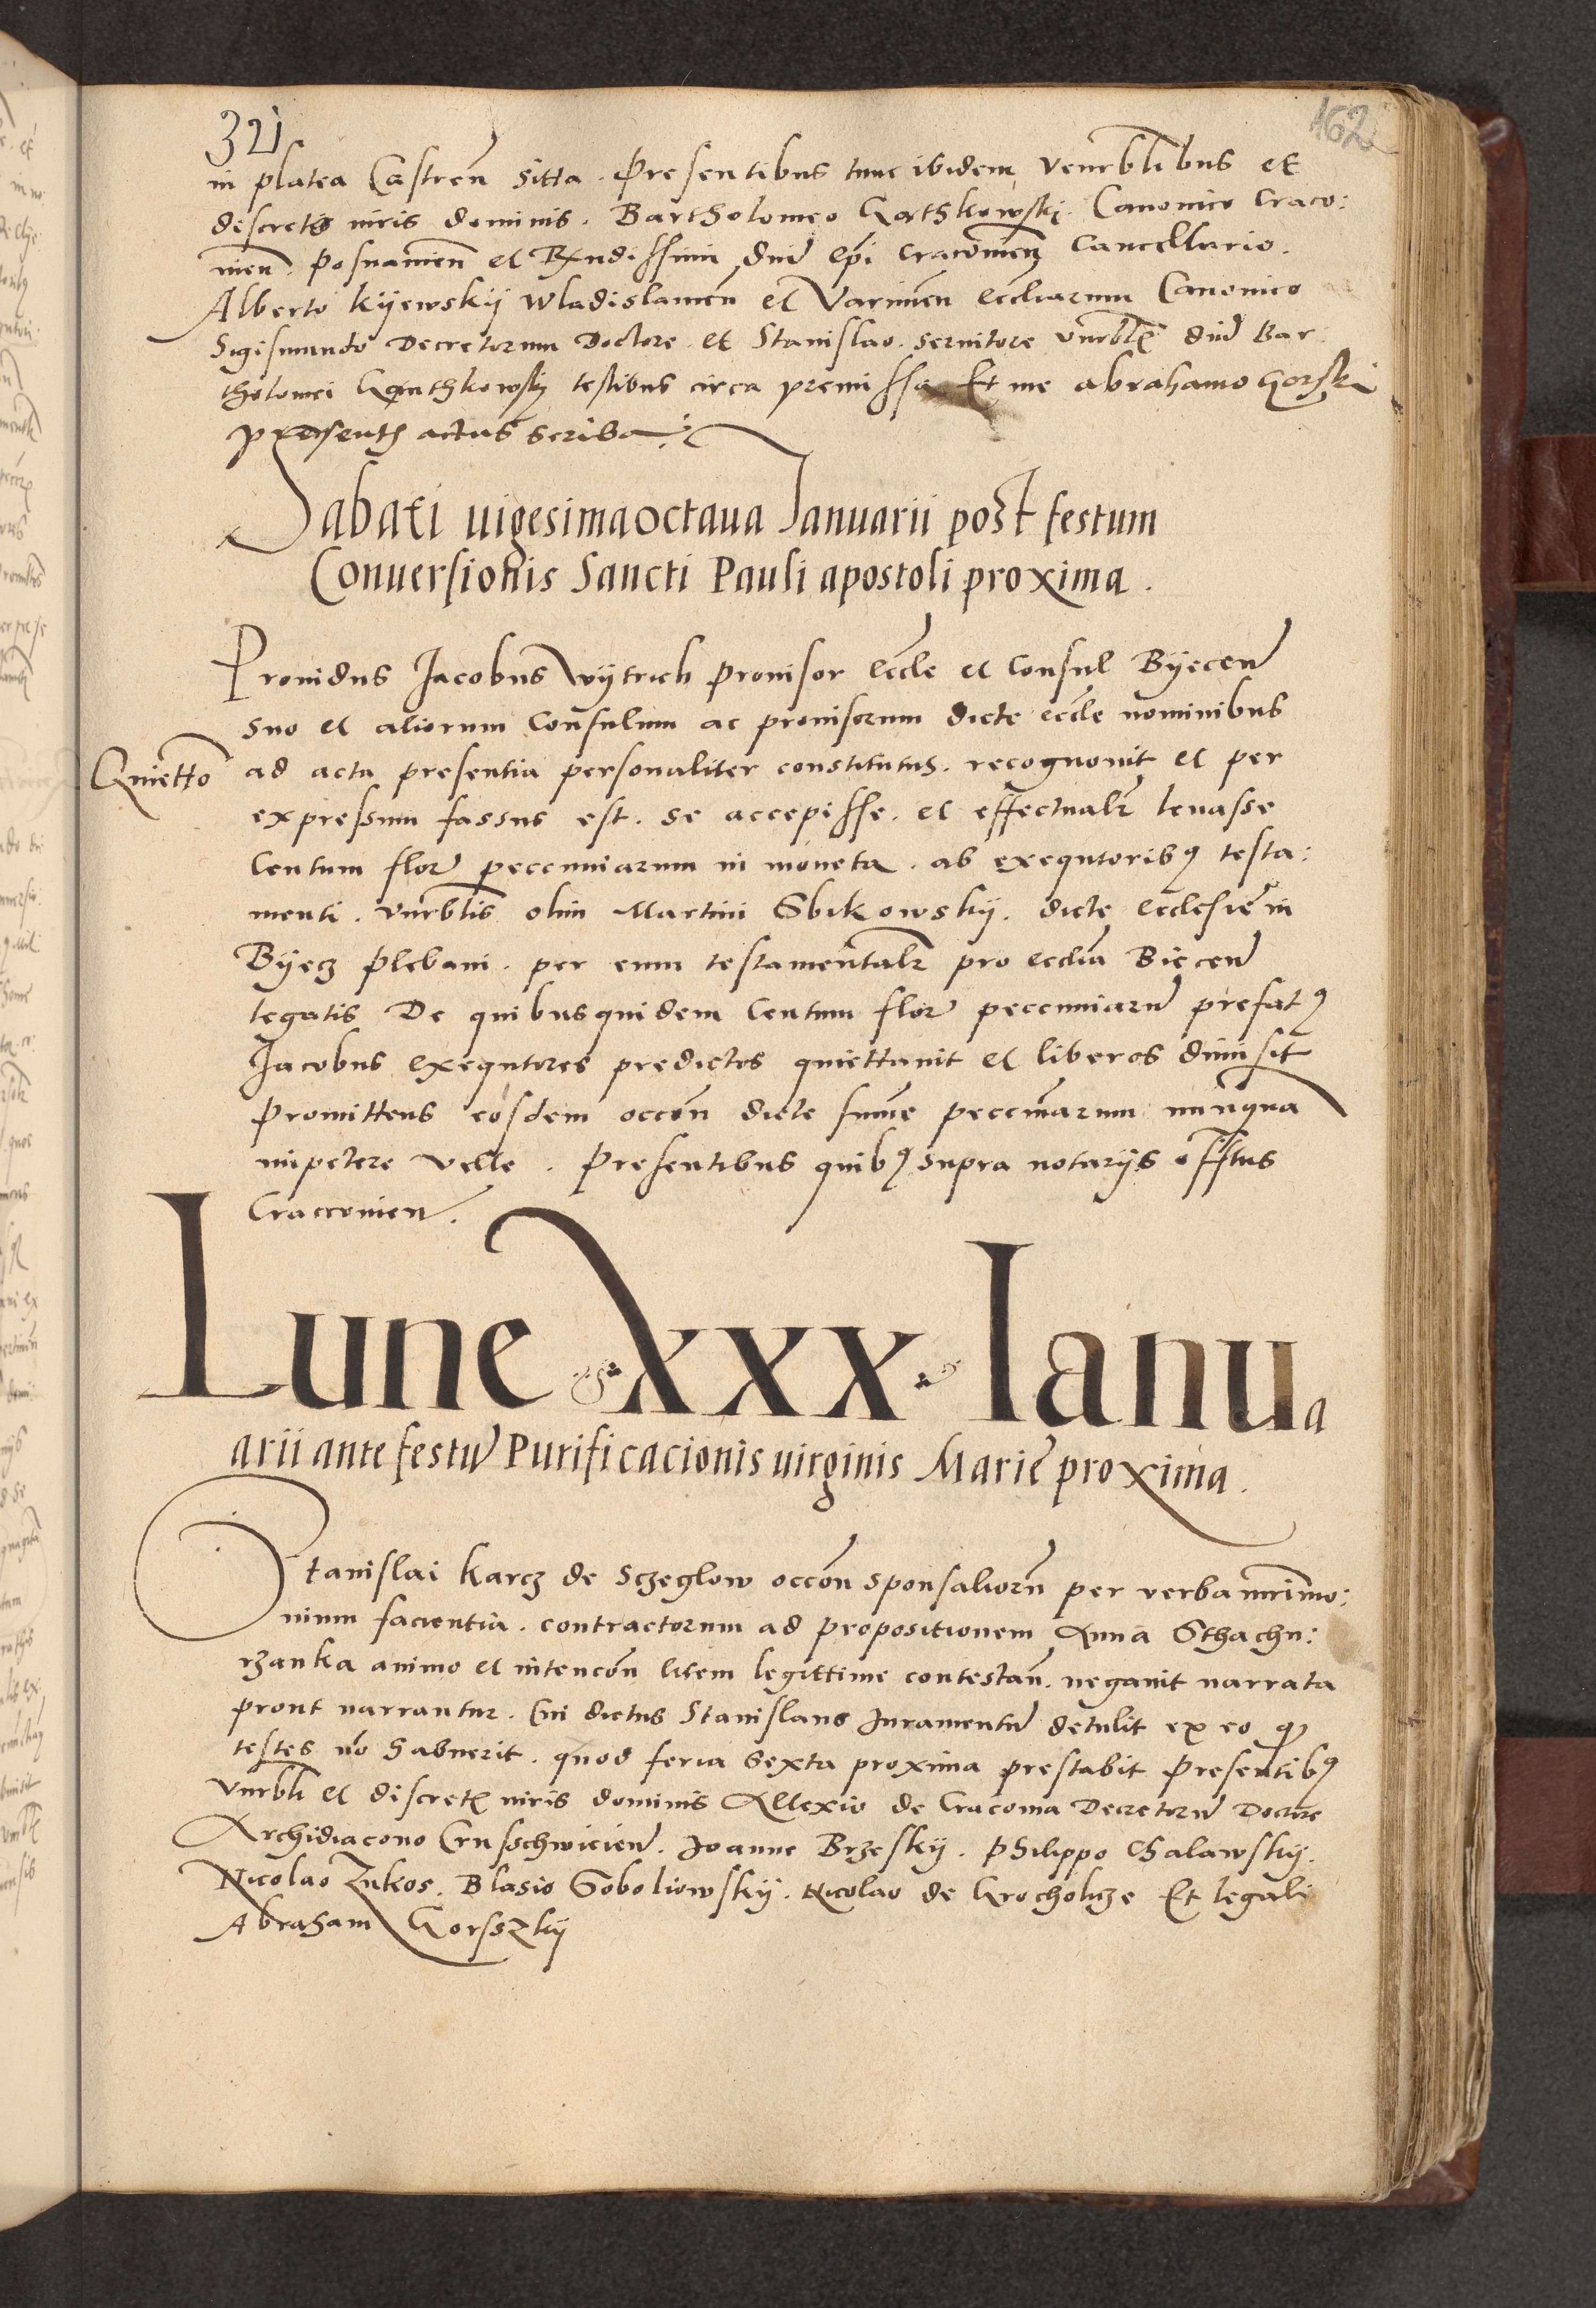 321
162
in platea Castren̄ sitta. Presentibus tunc ibidem venrblibus et
discretis viris dominis. Bartholomeo Gąthkowski. Canonico Craco:
vien. Posnanien̄ et Rx̄ndissimi dnī ep̄i Cracovien̄ Cancellario.
Alberto Kijewskij Wladislauien̄ et Varmien̄ eccliarum Canonico
Sigismundo Decretorum Doctore et Stanislao. seruitore vnrblis dnī Bar
tholomei Ganthkowskj testibus circa premissa Et me abrahamo Gorski
presentis actus scriba.
Sabati uigesimaoctaua Ianuarii post festum
Conuersionis Sancti Pauli apostoli proxima.
Prouidus Jacobus Wijtrich prouisor eccle et Consul Byecen̄
suo et aliorum Consulum ac prouisorum dicte eccle nominibus
Quietto
ad acta presentia personaliter constitutus. recognouit et per
expressum fassus est. se accepisse. et effectualr̄ leuasse
Centum flor̄ peccuniarum in moneta. ab exequtoribꝰ testa:
menti. vnrblis olim Martini Sbikowskij. dicte ecclesie in
Byecz plebani. per eum testamentalr̄ pro eccliā Biecen̄
legatis De quibusquidem Centum flor̄ peccuniarū prefatꝰ
Jacobus exequtores predictos quiettauit et liberos dimisit
promittens eosdem occōn dicte summe peccuniarum nunqua
impetere velle. Presentibus quibꝰ supra notarijs offtus
Craccouien̄.
Lune xxx Ianua
arii ante festū Purificacionis uirginis Marie proxima.
Stanislai Karcz de Sczeglow occōn sponsaliorū per verba mr̄imo:
nium facientia. contractorum ad propositionem Anna Sthachu:
rzanka animo et intencōn litem legittime contestan̄. negauit narrata
prout narrantur. Cui dictus Stanislaus Juramentū detulit ex eo qꝫ
testes nō habuerit. quod feria sexta proxima prestabit Presentibꝰ
vnrbli et discretis viris dominis Allexio de Cracouia Decretorū Doctore
Archidiacono Crusschwicien̄. Joanne Brzeskij. Philippo Chalawskij.
Nicolao Zukos. Blasio Soboliowskij. Nicolao de Grocholicze Et legali
Abraham Gorsszkij